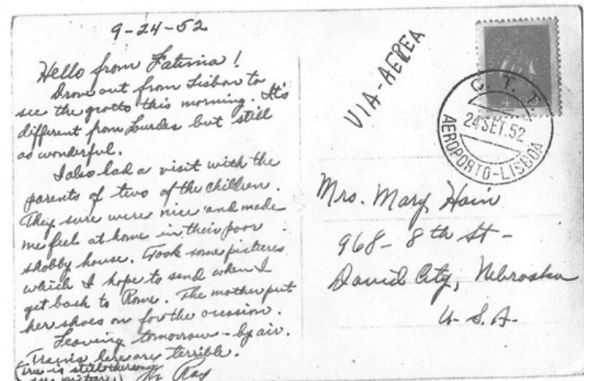 9-24-52
Hello from Fatima!
Drove out from Lisbon to
see the grotto this morning. It's
different from Lourdes but still
as wonderful.
I also had a visit with the
parents of two of the children.
They sure were nice and made
me feel at home in their poor
shabby house. Took some pictures
which I hope to send when I
get back to Rome. The mother put
her shoes on for the occasion.
Leaving tomorrow - by air.
Trains here are terrible.
(Tree is still there
see picture)
Ray
VIA-AEREA
C.T.
24 SET. 52
AEROPORTO-LISBOA
Mrs. Mary Hain
968 - 8th St -
David City, Nebraska
U.S.A.